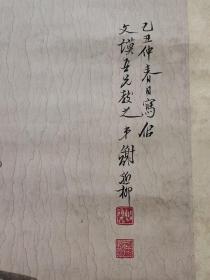 己丑仲春日寫似
文謨吾兄教之 弟謝稚柳